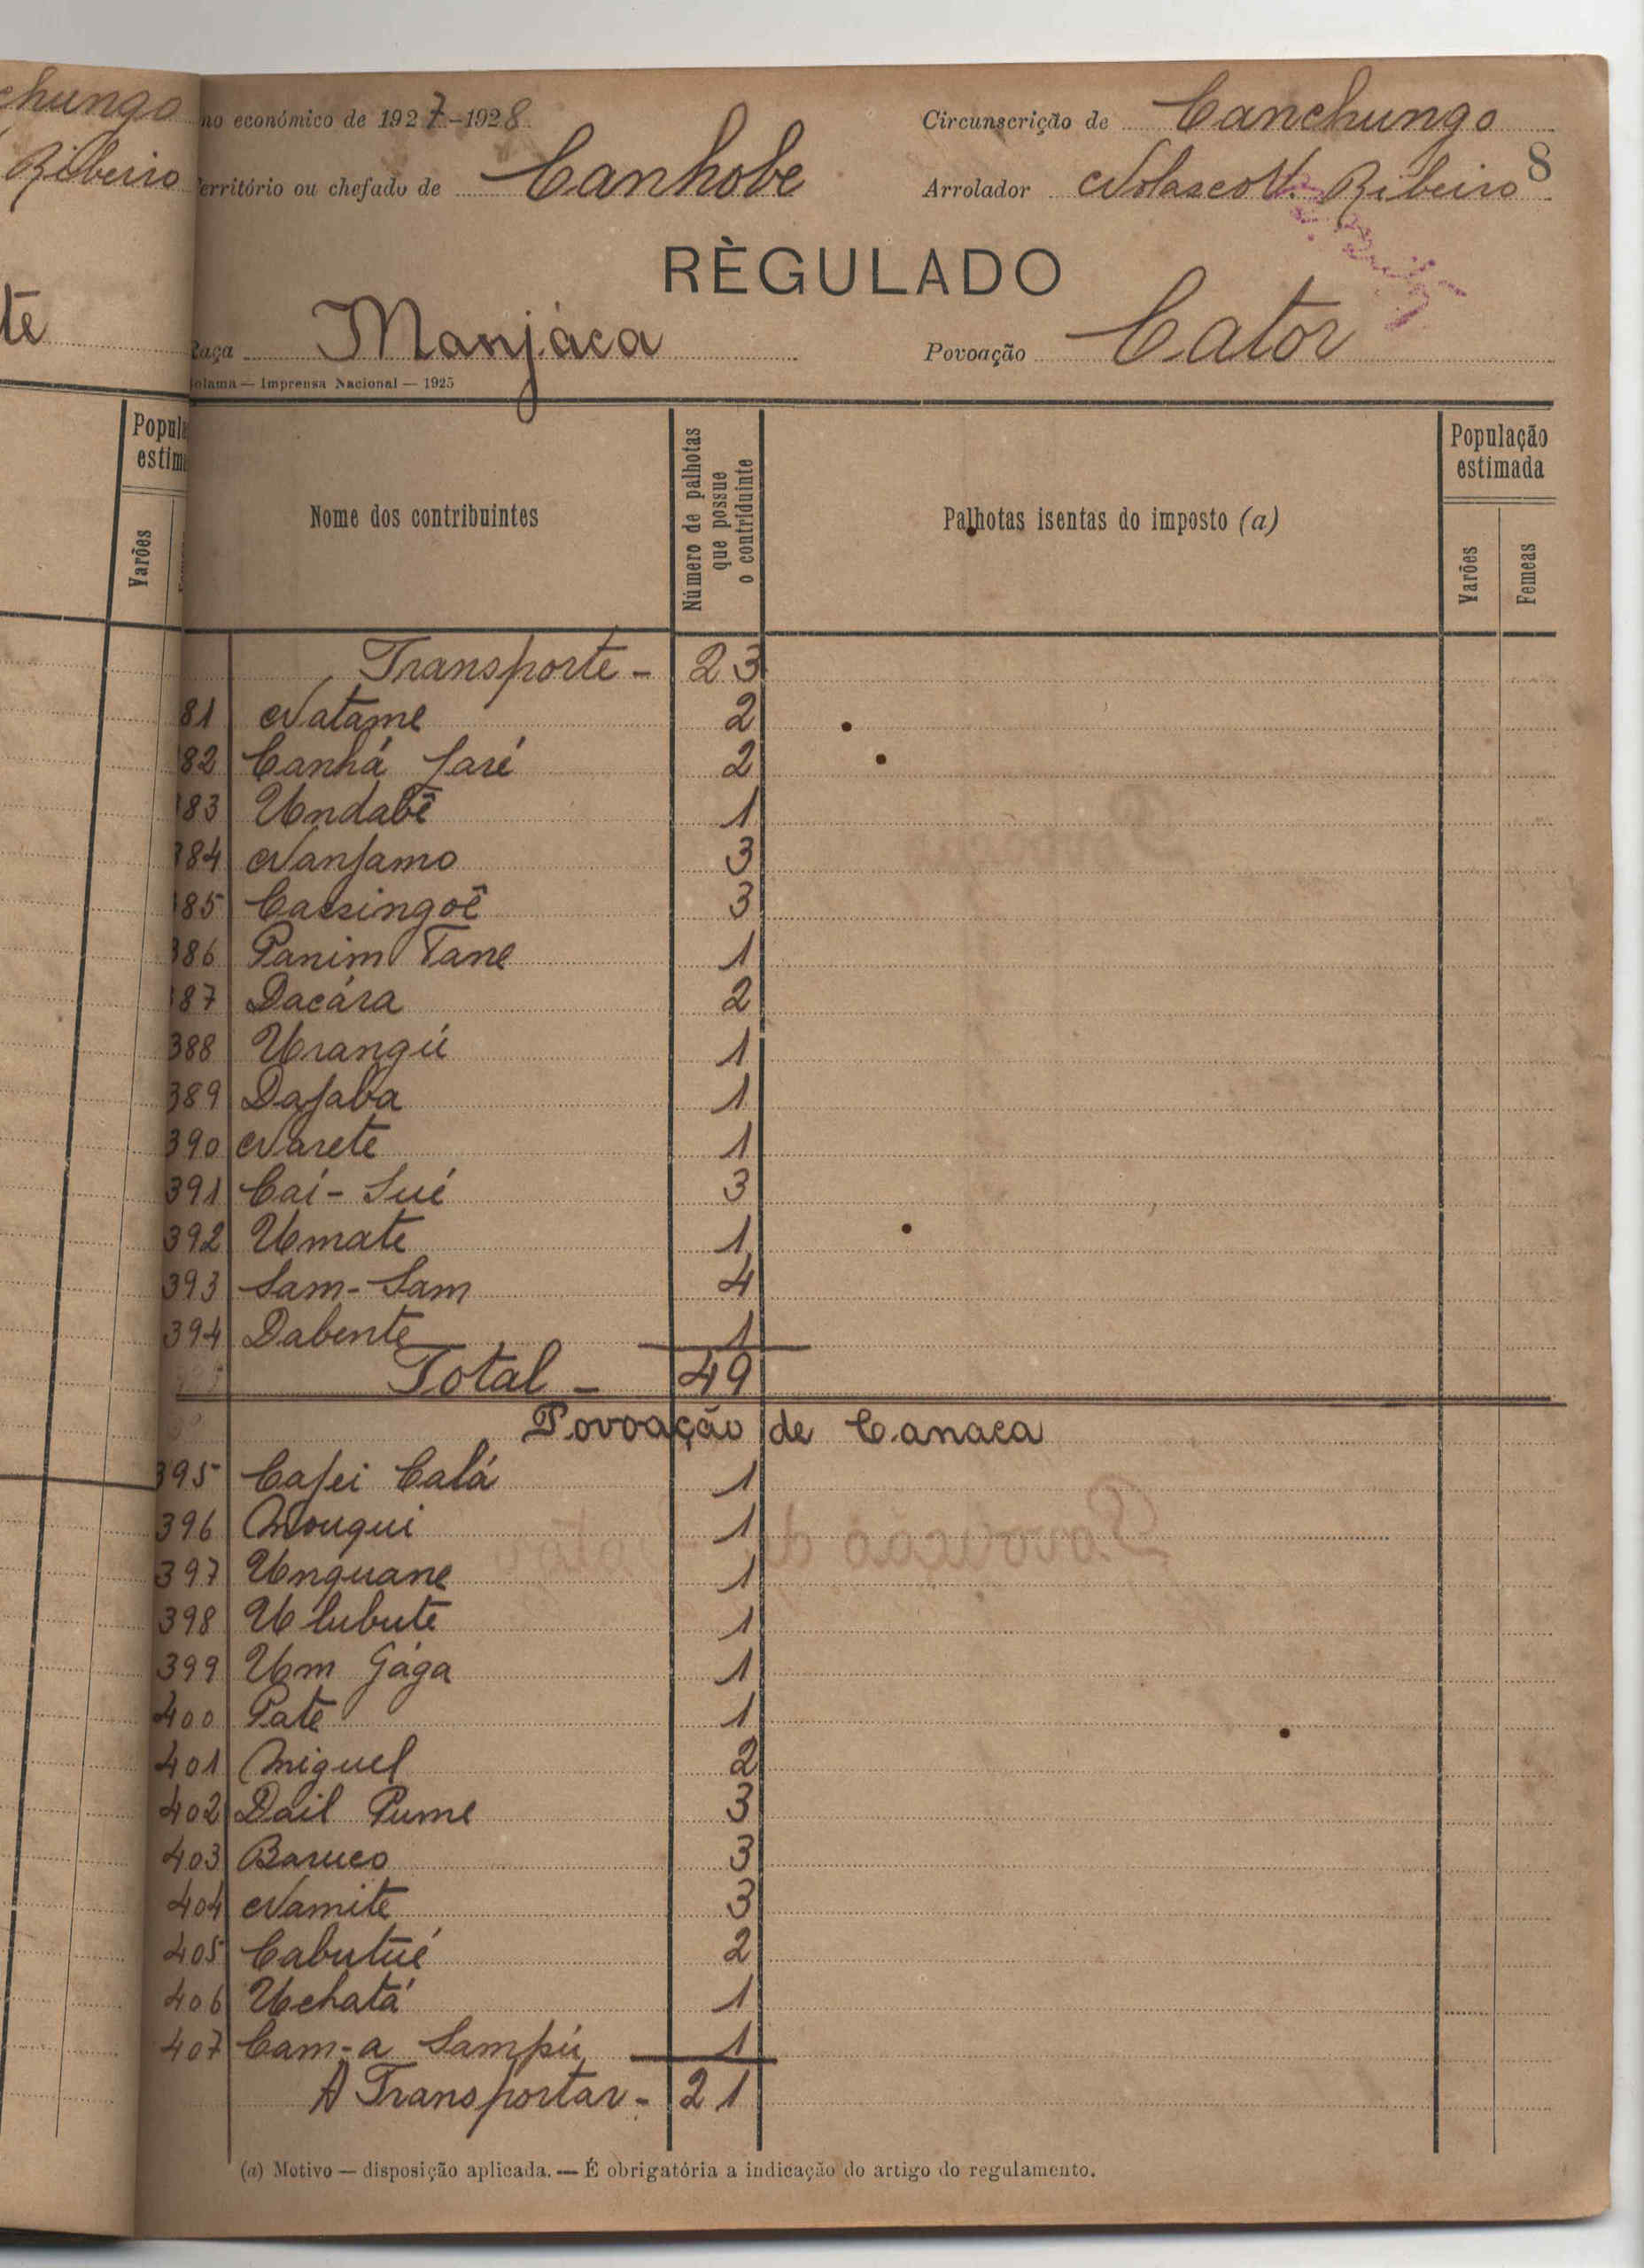 chungo
Ribeiro
te
Popula
estim
Varões
no económico de 1927-1928
Circunscrição de Canchungo
8
erritório ou chefado de Canhobe
Arrolador Nolasco V. Ribeiro
RÈGULADO
Raça Manjáca
Povoação Cator
olama — Imprensa Nacional — 1925
Nome dos contribuintes
Número de palhotas que possue o contriduinte
Palhotas isentas do imposto (a)
População estimada
Varões
Femeas
Transporte - 23
81 Natame 2
82 Canhá Jaré 2
83 Undabê 1
384 Nanjamo 3
385 Cassingoê 3
386 Panim Tane 1
387 Dacára 2
388 Urangú 1
389 Dajaba 1
390 Narete 1
391 Caí-Sué 3
392 Umate 1
393 Sam-Sam 4
394 Dabente 1
Total - 49
Povoação de Canaca
395 Cajei Calá 1
396 Mouqui 1
397 Unquane 1
398 Ulubute 1
399 Um Gága 1
400 Pate 1
401 Miguel 2
402 Dail Pume 3
403 Baruco 3
404 Namite 3
405 Cabutué 2
406 Uchatá 1
407 Cam-a Sampú 1
A Transportar - 21
(a) Motivo — disposição aplicada. — É obrigatória a indicação do artigo do regulamento.